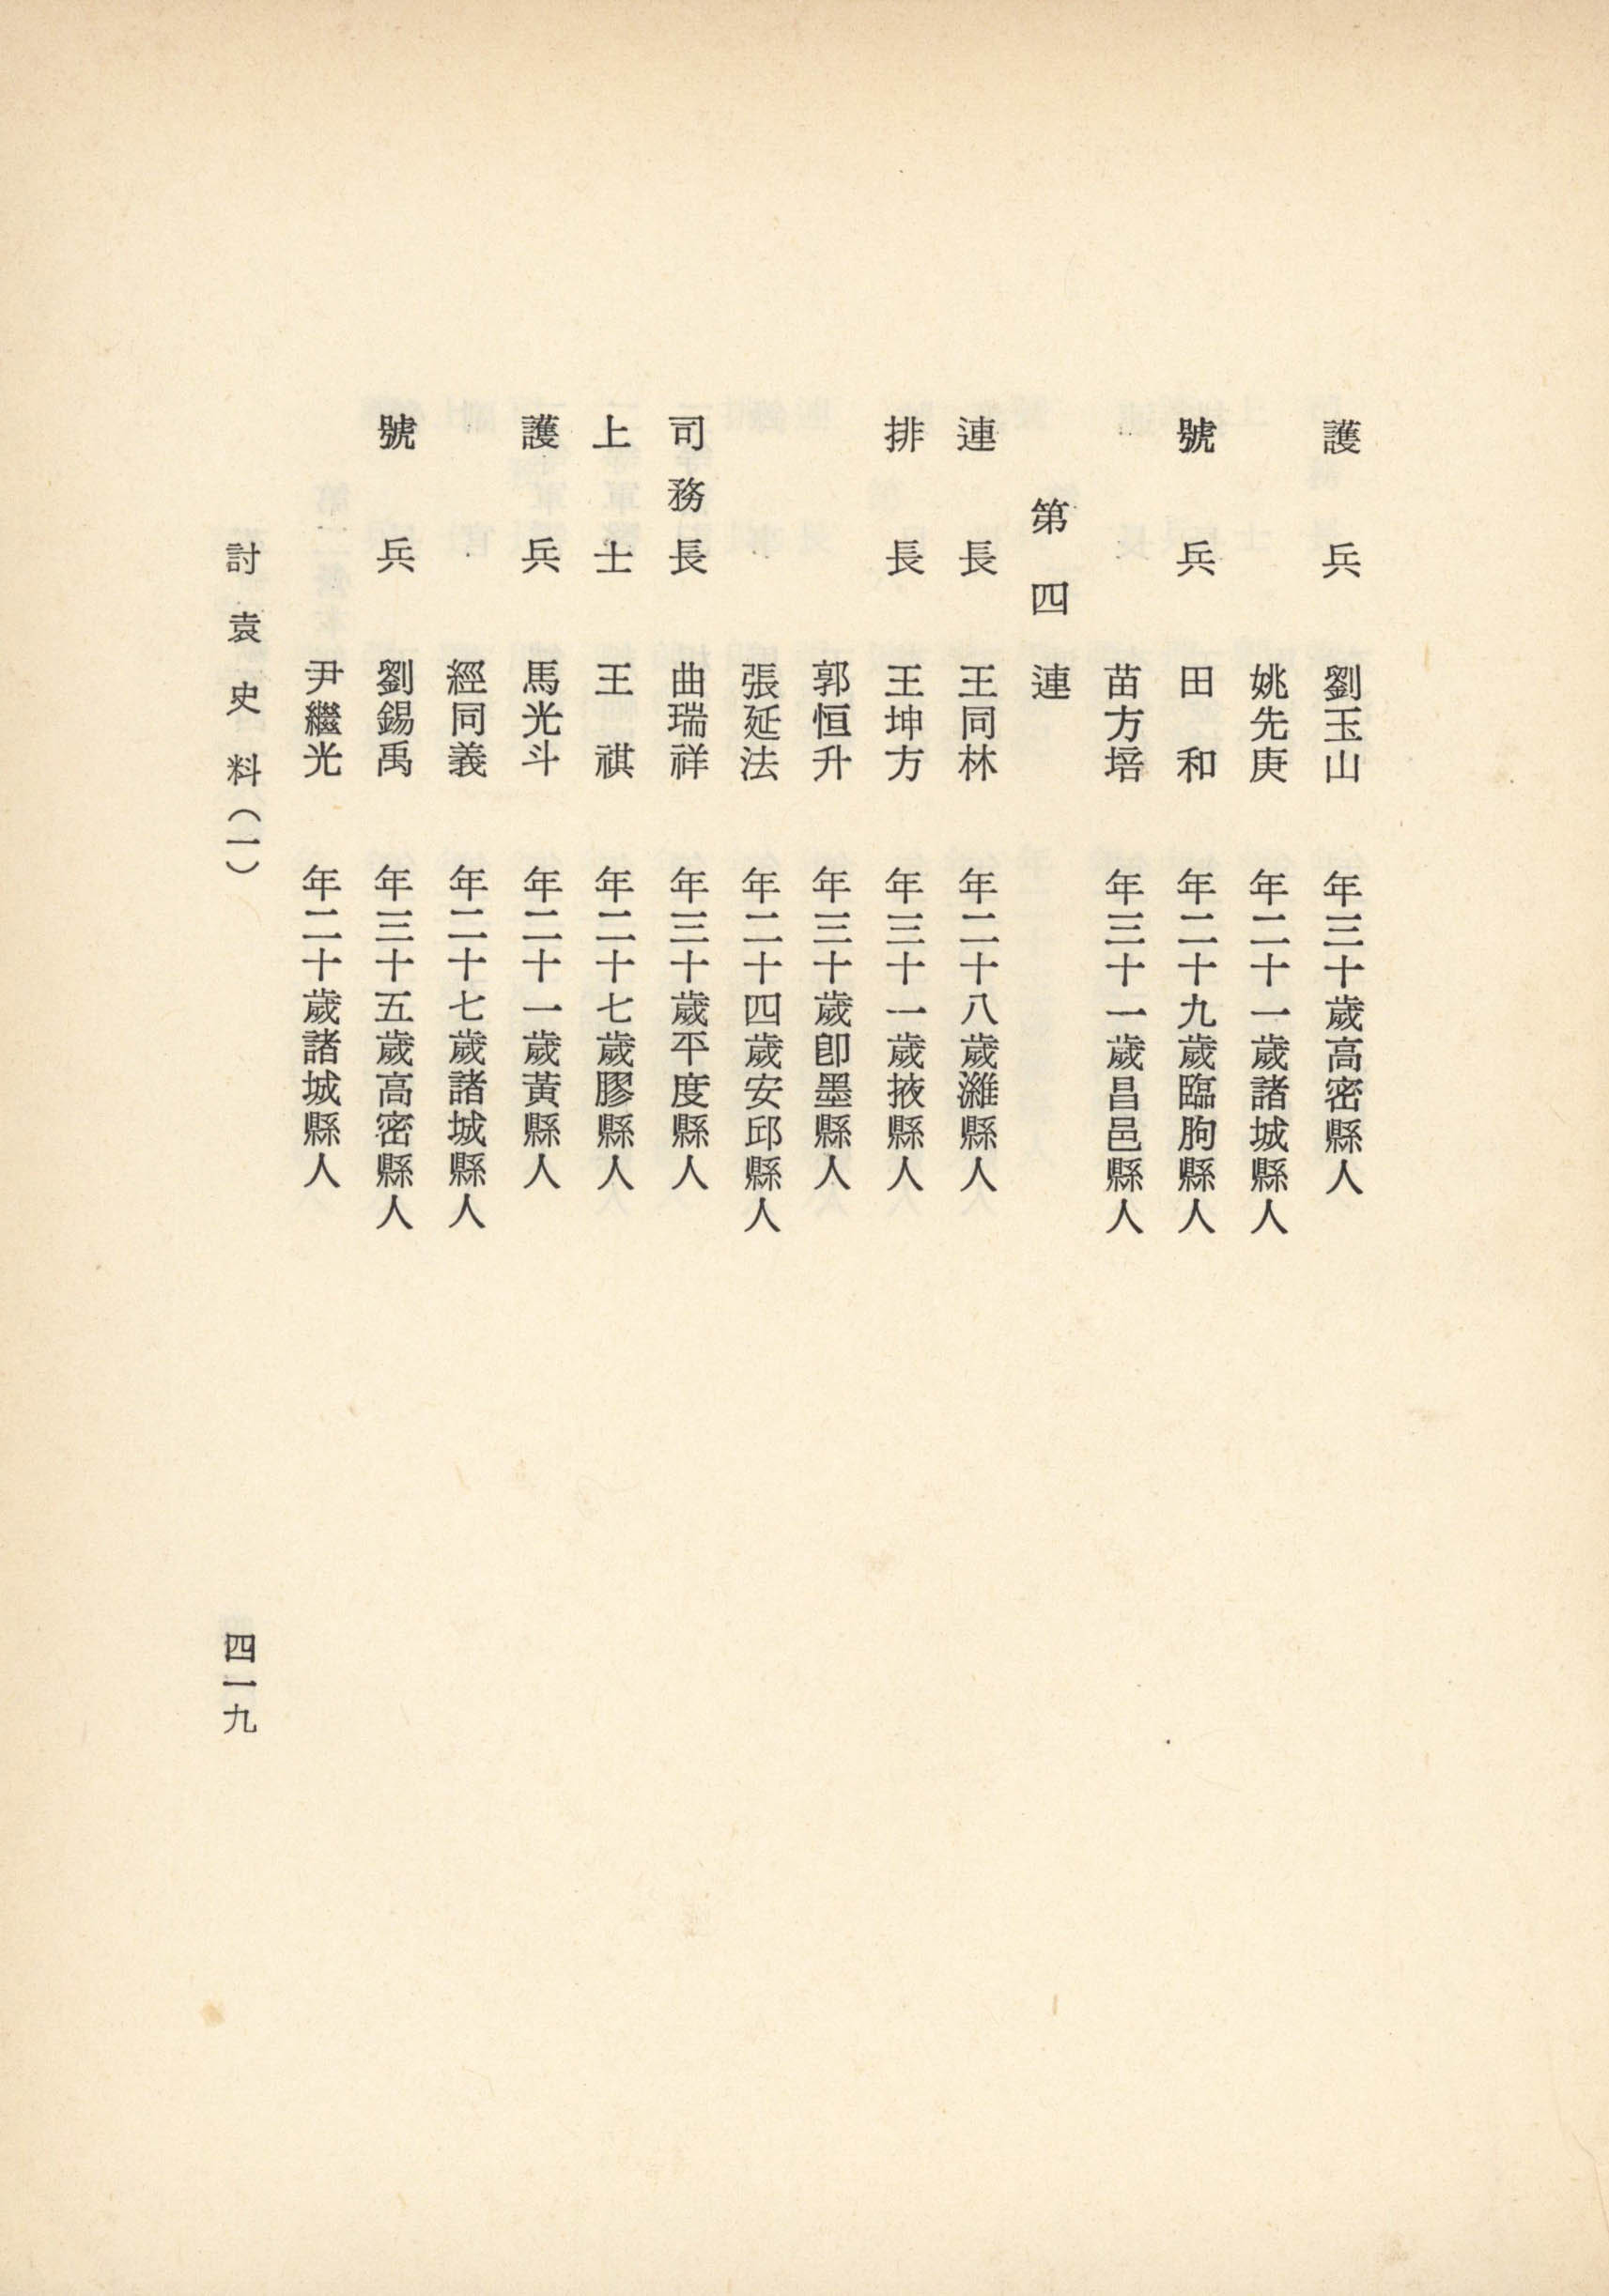 護兵 劉玉山 年三十歲高密縣人
姚先庚 年二十一歲諸城縣人
號兵 田和 年二十九歲臨朐縣人
苗方培 年三十一歲昌邑縣人
第四連
連長 王同林 年二十八歲濰縣人
排長 王坤方 年三十一歲掖縣人
郭恒升 年三十歲卽墨縣人
張延法 年二十四歲安邱縣人
司務長 曲瑞祥 年三十歲平度縣人
上士 王祺 年二十七歲膠縣人
護兵 馬光斗 年二十一歲黃縣人
經同義 年二十七歲諸城縣人
號兵 劉錫禹 年三十五歲高密縣人
尹繼光 年二十歲諸城縣人
討袁史料(一)
四一九